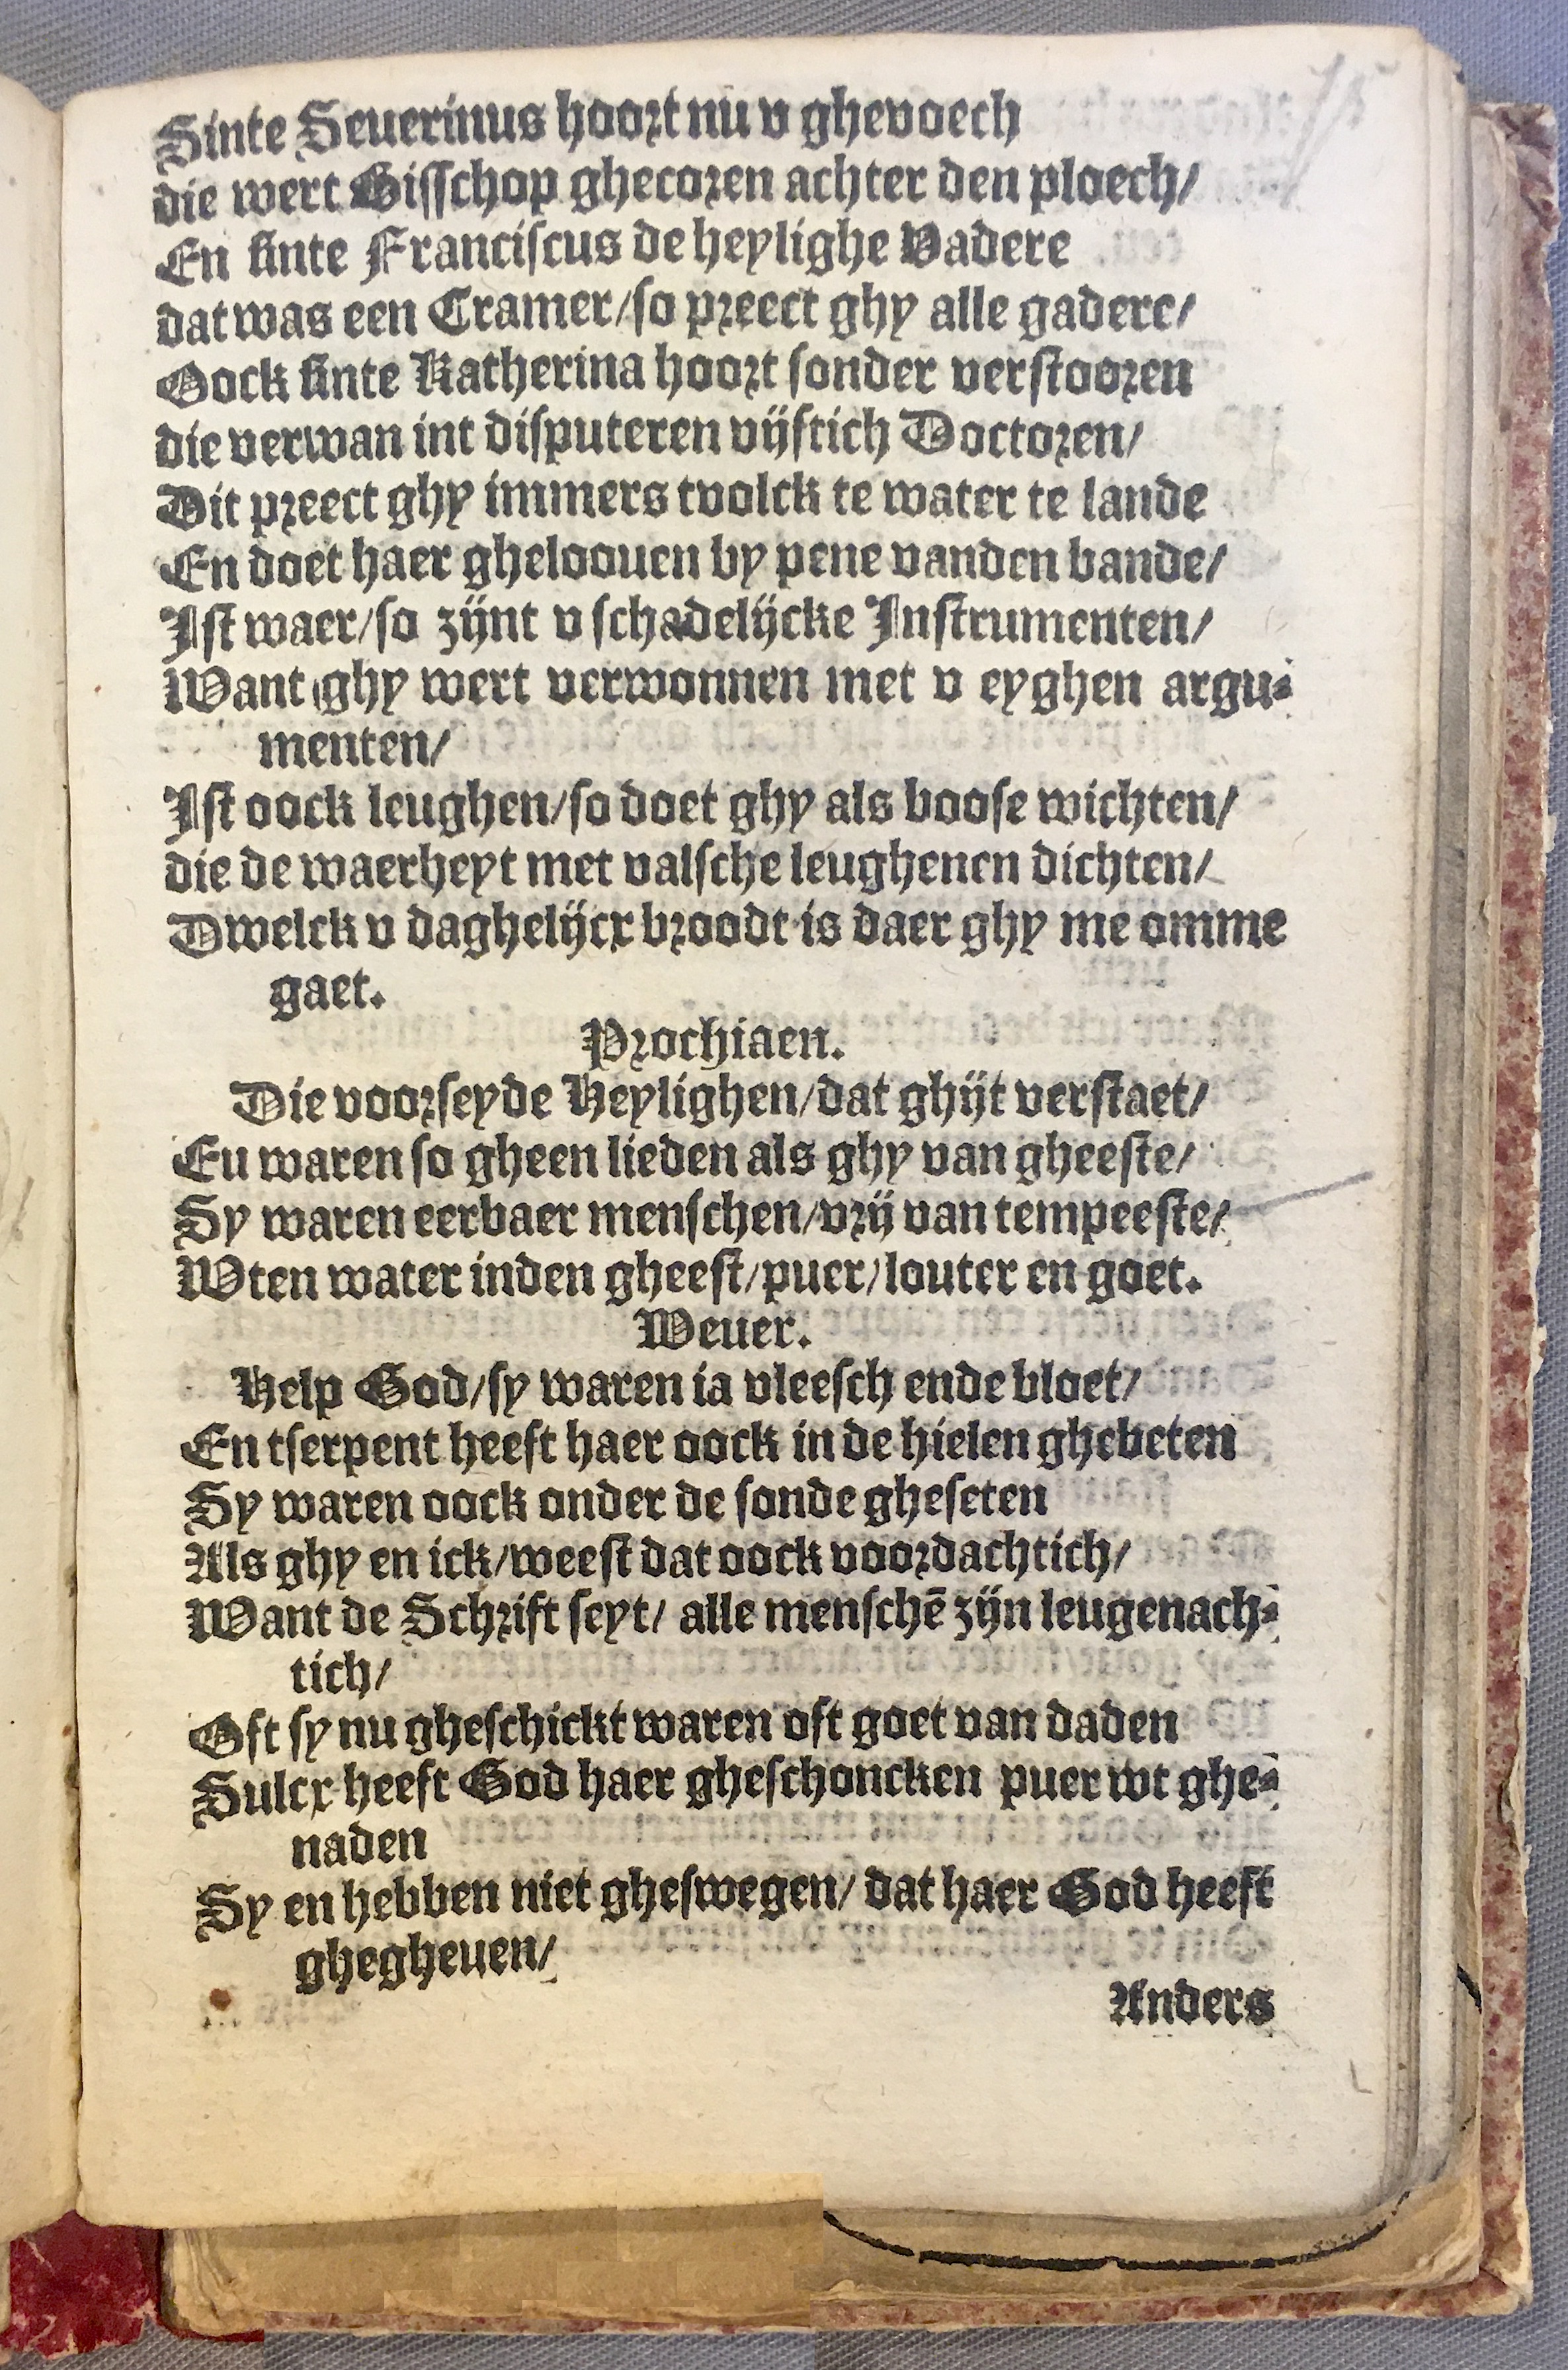 Sinte Seuerinus hoort nu v ghevoech
die wert Bisschop ghecoren achter den ploech/
En sinte Franciscus de heylighe Vadere
dat was een Cramer/so preect ghy alle gadere/
Oock sinte Katherina hoort sonder verstooren
die verwan int disputeren vijftich Doctoren/
Dit preect ghy immers tvolck te water te lande
En doet haer ghelooven by pene vanden bande/
Ist waer/so zijnt v schadelijcke Instrumenten/
Want ghy wert verwonnen met v eyghen argu-
menten/
Ist oock leughen/so doet ghy als boose wichten/
die de waerheyt met valsche leughenen dichten/
Dwelck v daghelijcx broodt is daer ghy me omme
gaet.
Prochiaen.
Die voorseyde Heylighen/dat ghijt verstaet/
En waren so gheen lieden als ghy van gheeste/
Sy waren eerbaer menschen/vrij van tempeeste/
Wten water inden gheest/puer/louter en goet.
Weuer.
Help God/sy waren ia vleesch ende bloet/
En tserpent heeft haer oock in de hielen ghebeten
Sy waren oock onder de sonde gheseten
Als ghy en ick/weest dat oock voordachtich/
Want de Schrift seyt/ alle menschē zijn leugenach-
tich/
Oft sy nu gheschickt waren oft goet van daden
Sulcx heeft God haer gheschoncken puer wt ghe-
naden
Sy en hebben niet gheswegen/ dat haer God heeft
ghegheuen/
Anders